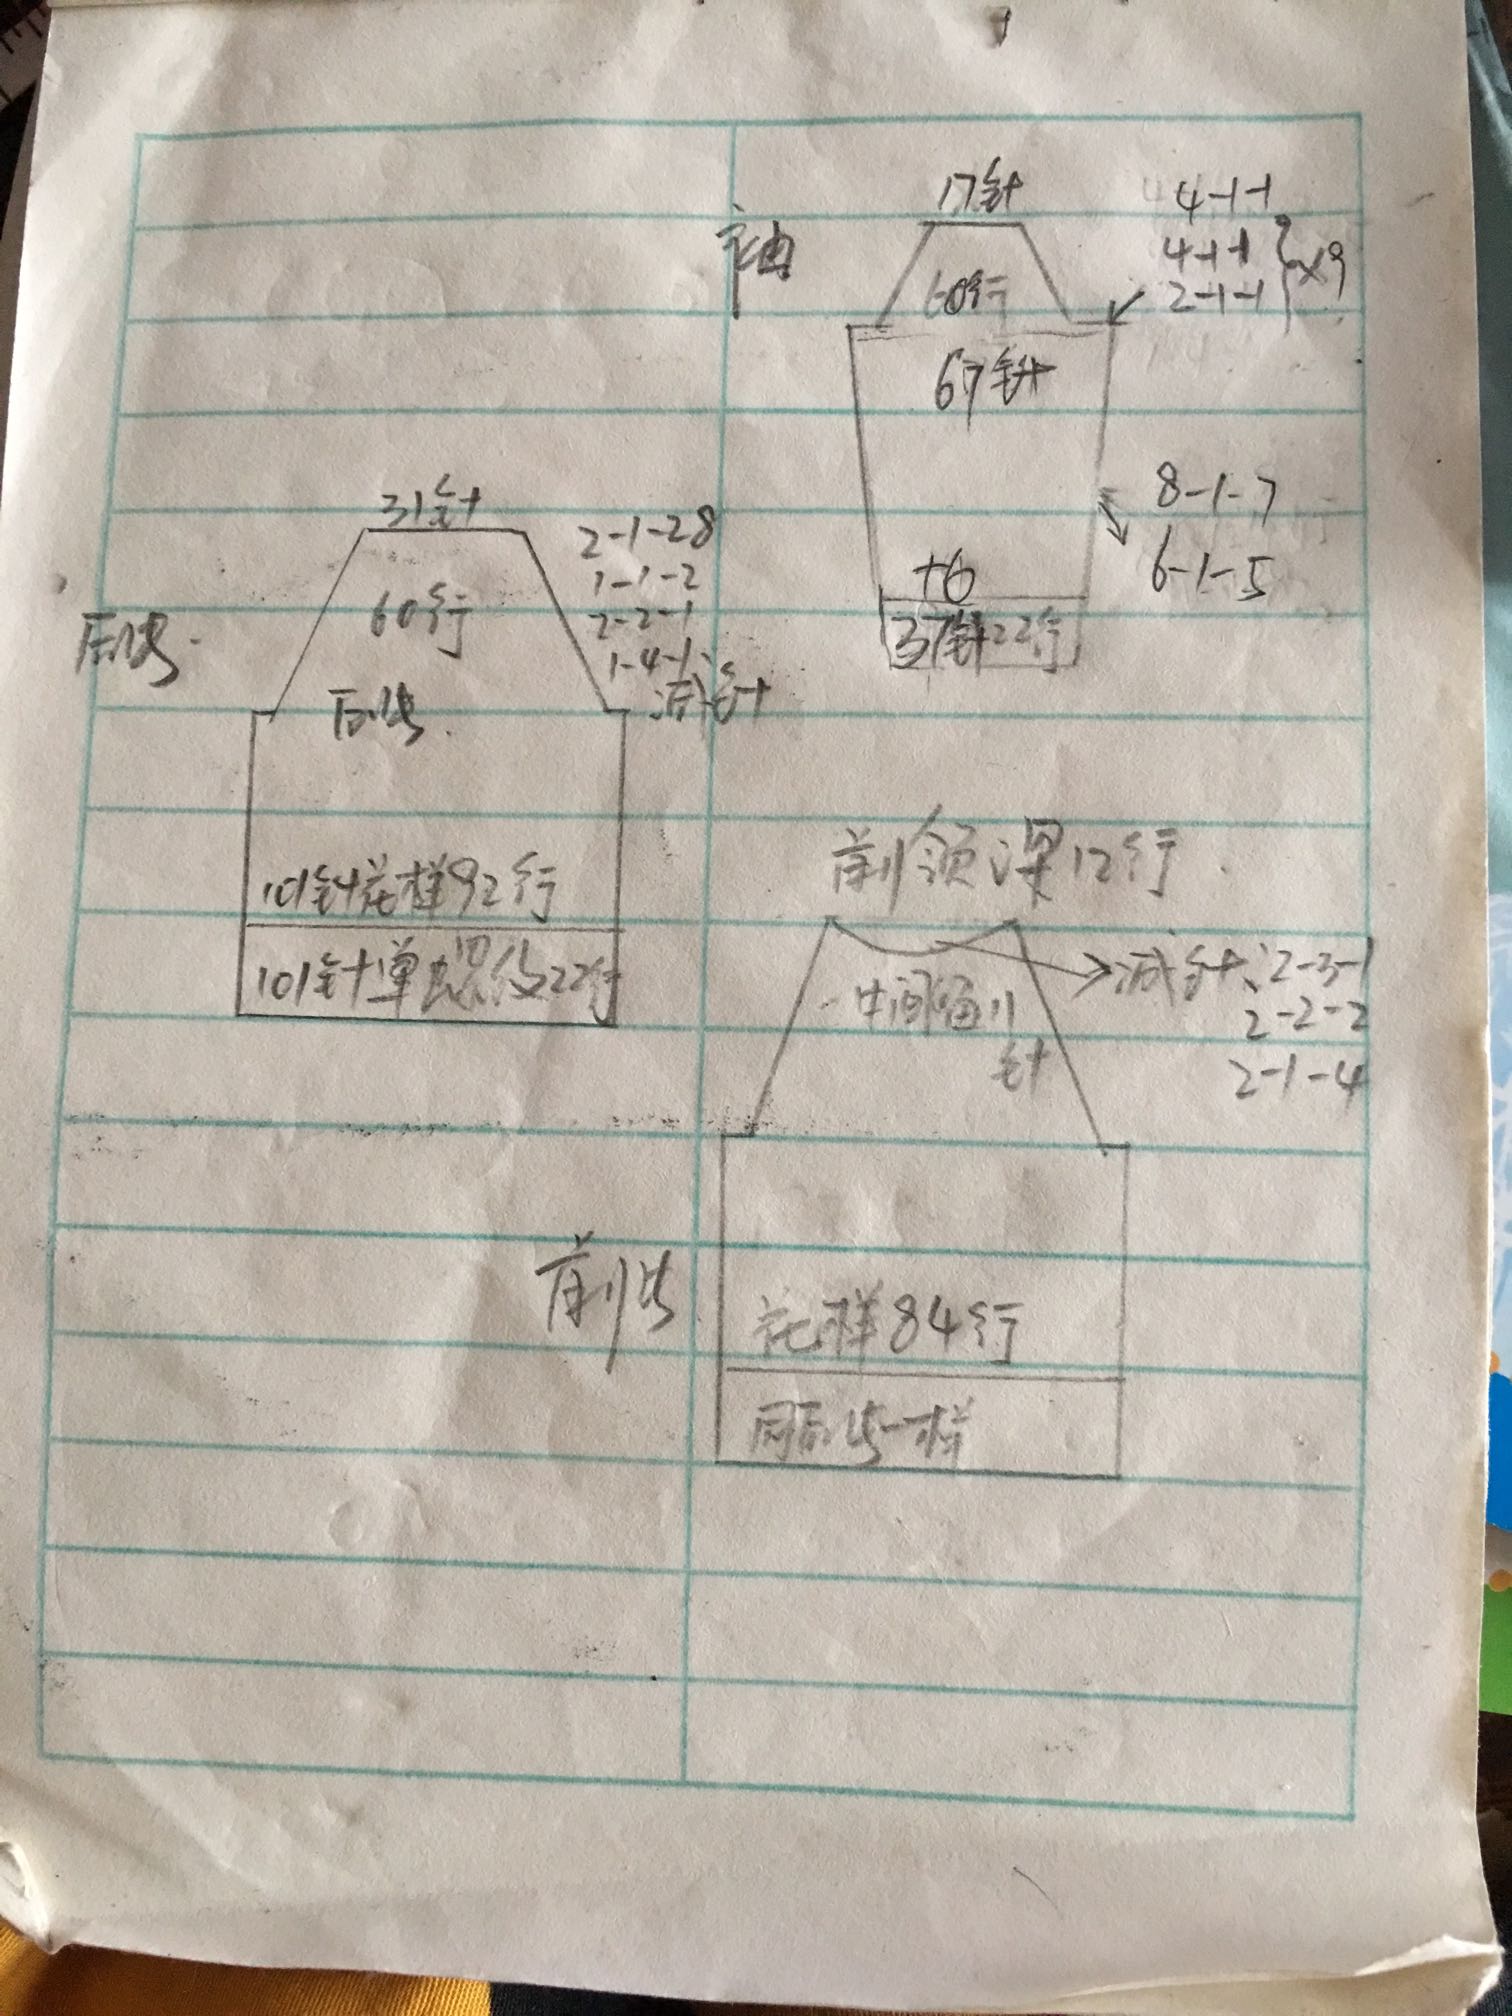 17针
4-1-1
袖
4-1-1
}×9
60行
2-1-1
67针
8-1-7
+6
6-1-5
37针22行
31针
2-1-28
1-1-2
60行
2-2-1
后片
1-4-1
减针
后片
101针花样92行
101针单螺纹22行
前领深12行
中间留11
针
减针:2-3-1
2-2-2
2-1-4
前片
花样84行
同后片一样